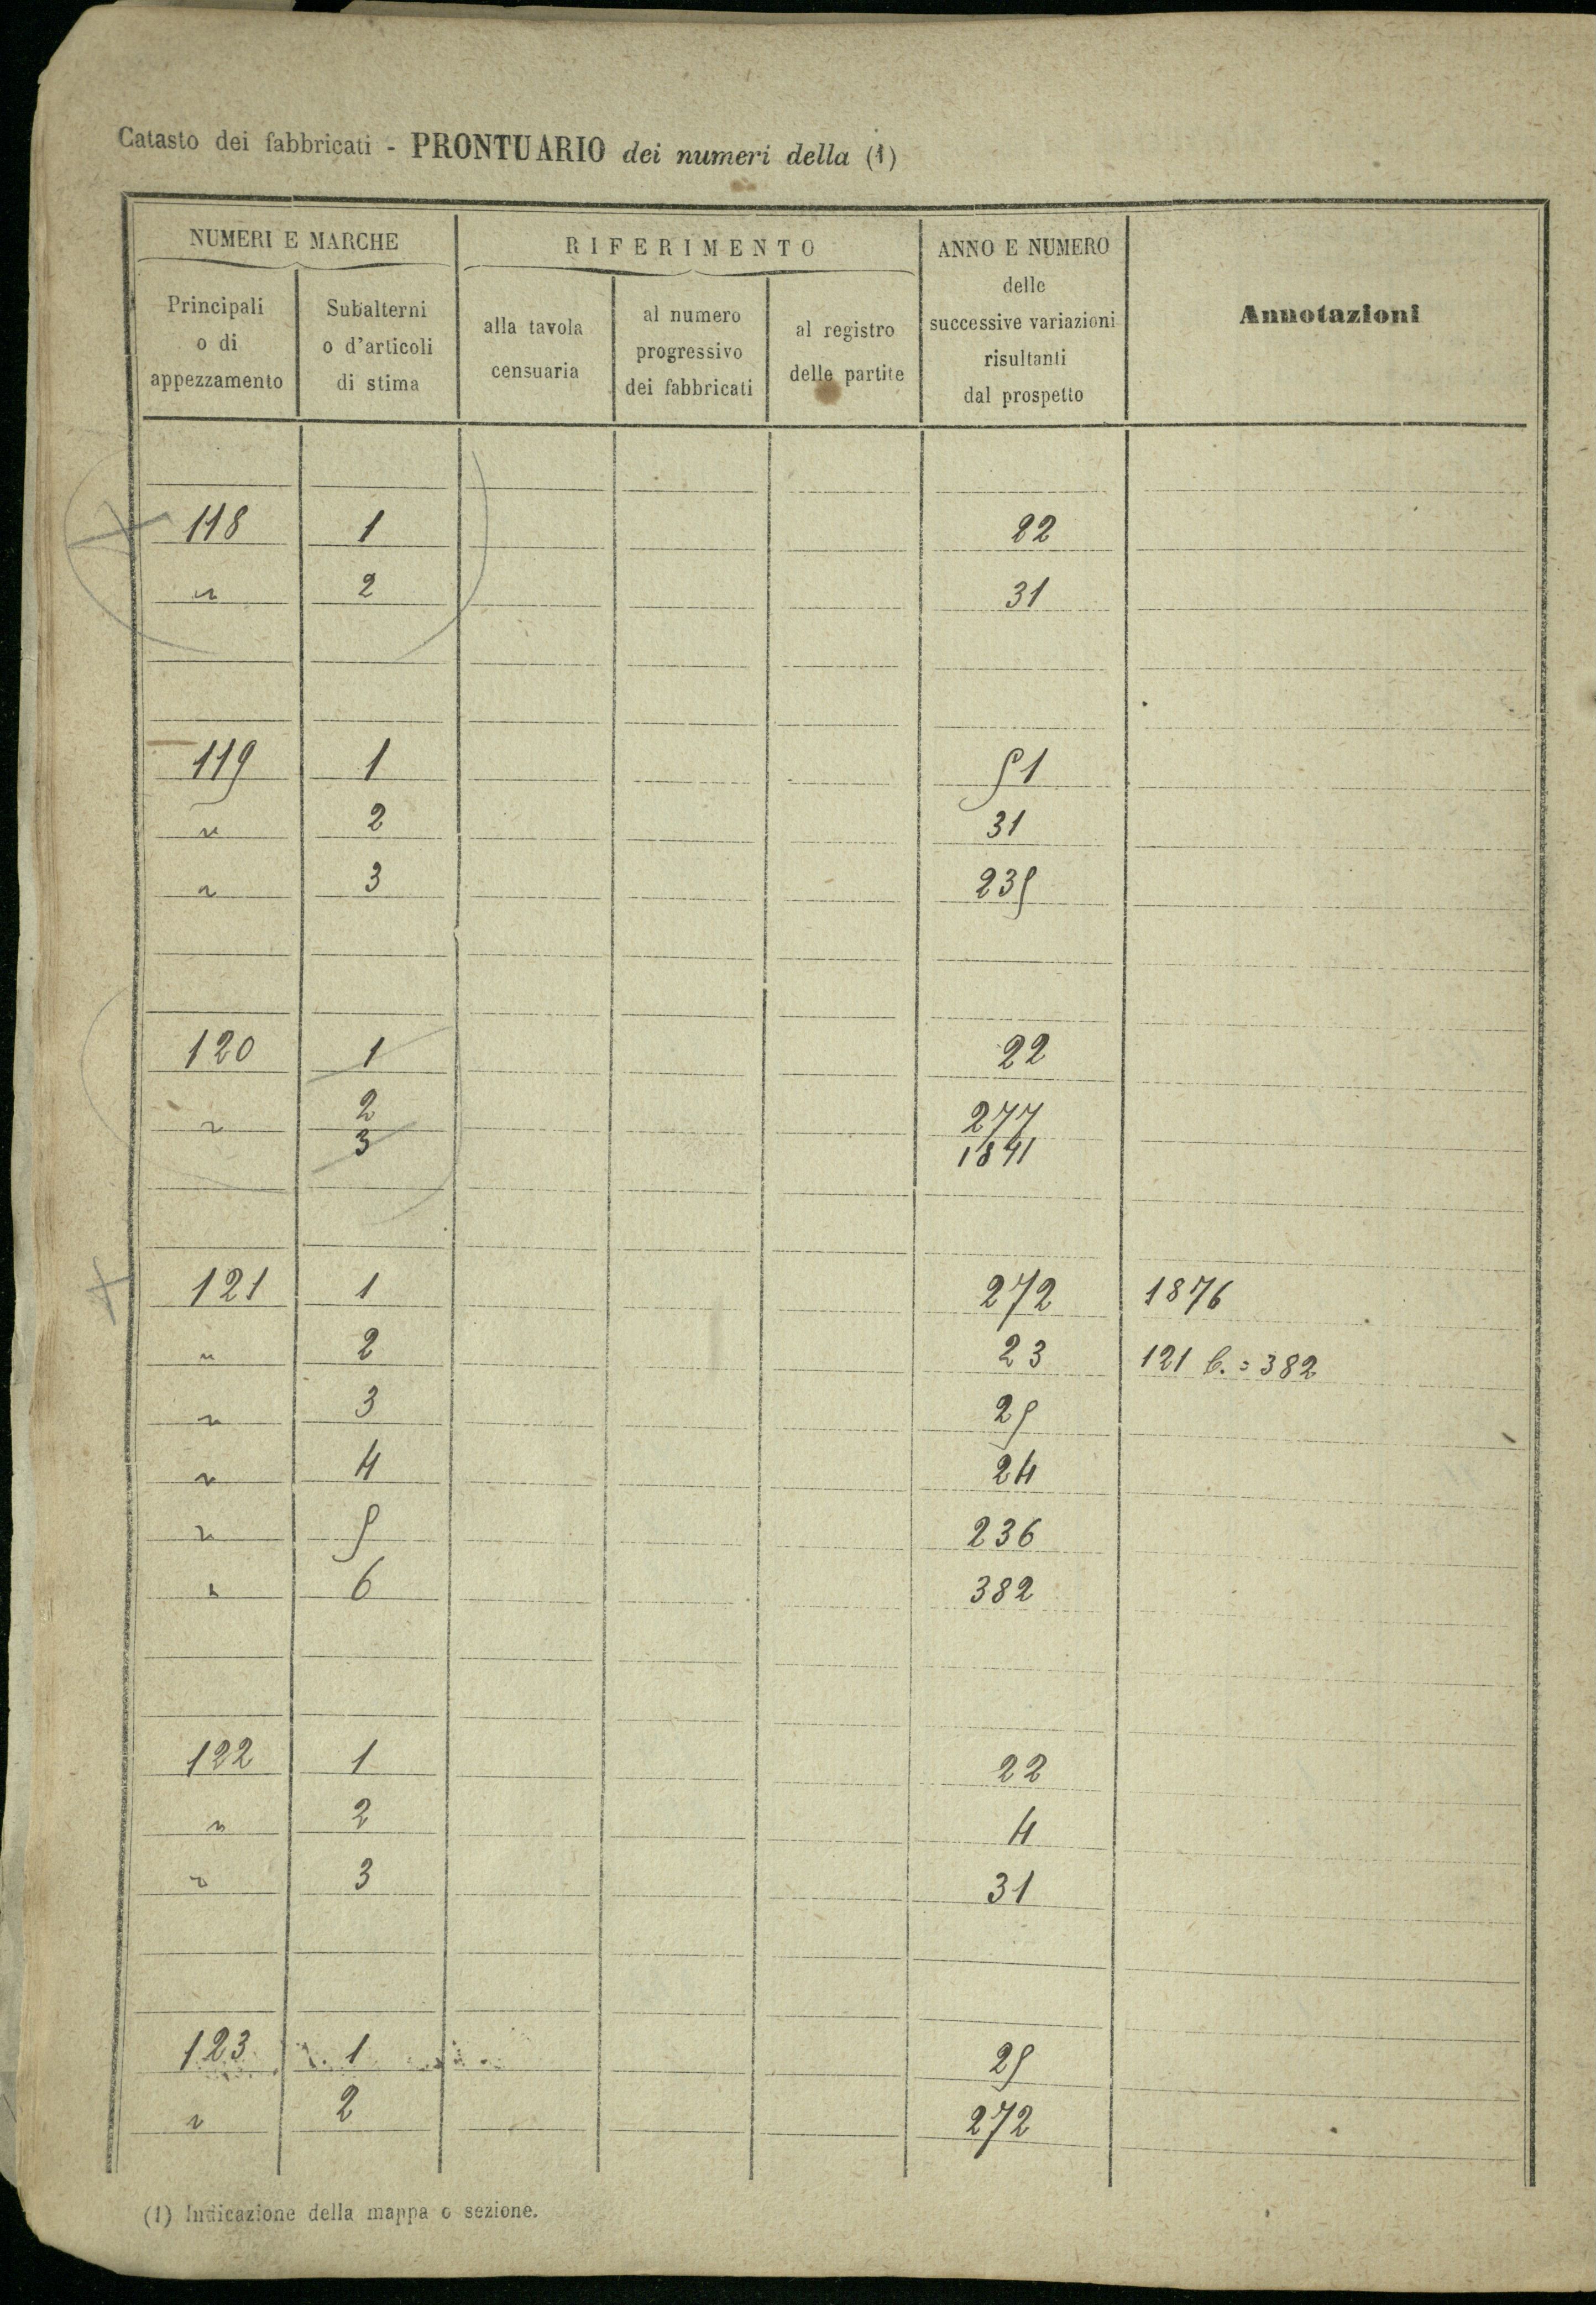 Catasto dei fabbricati - PRONTUARIO dei numeri della (1)
NUMERI E MARCHE
RIFERIMENTO
ANNO E NUMERO
delle
successive variazioni
risultanti
dal prospetto
Annotazioni
Principali
o di
appezzamento
Subalterni
o d'articoli
di stima
alla tavola
censuaria
al numero
progressivo
dei fabbricati
al registro
delle partite
118 1 22
" 2 31
119 1 51
" 2 31
" 3 235
120 1 22
" 2 277
3 1841
121 1 272 1876
" 2 23 121 b. = 382
" 3 25
" 4 24
" 5 236
" 6 382
122 1 22
" 2 4
" 3 31
123 1 25
" 2 272
(1) Indicazione della mappa o sezione.